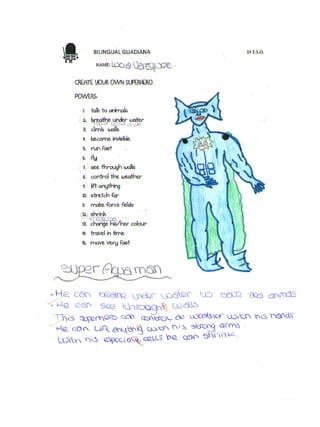 BILINGUAL GUADIANA
1º E.S.O.
NAME:
CREATE YOUR OWN SUPERHERO
POWERS:
1. talk to animals
2. breathe under water
3. climb walls
4. become invisible
5. run fast
6. fly
7. see through walls
8. control the weather
9. lift anything
10. stretch far
11. make force fields
12. shrink
13. change his/her colour
14. travel in time
15. move very fast
Super Aquaman
- He can breathe under water to save sea animals
- He can see throught walls
This superhero can control de weather with his hands
He can lift anything with his strong arms.
With his especials cells he can shrink.